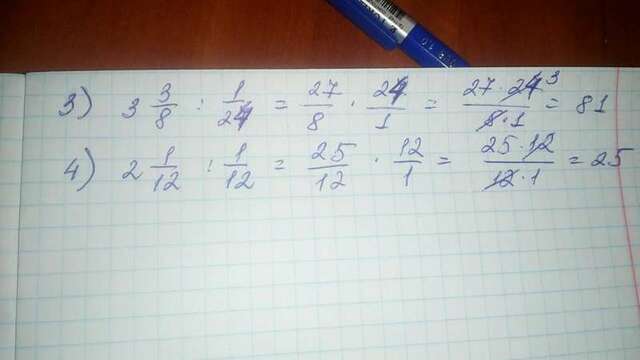 3) 3 3/8 : 1/24 = 27/8 · 24/1 = 27 · 24 3/8 · 1 = 81
4) 2 1/12 : 1/12 = 25/12 · 12/1 = 25 · 12/12 · 1 = 25